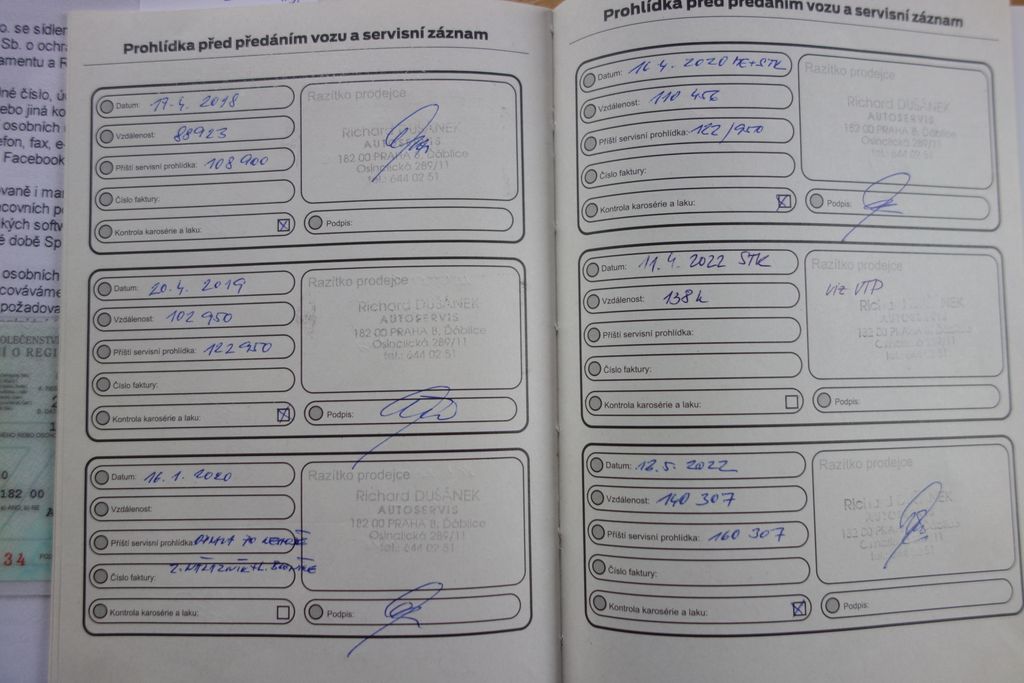 o. se sídlem
Sb. o ochr
amentu a R
né číslo, ú
ebo jiná ko
osobních
efon, fax, e-
Facebook
vaně i ma
covních p
kých softw
é době Sp
osobních
cováváme
požadova
OLEČENSTV
Í O REGI
182 00
34
Prohlídka před předáním vozu a servisní záznam
Datum: 17.4. 2018
Vzdálenost: 88923
Příští servisní prohlídka: 108 900
Číslo faktury:
Kontrola karosérie a laku:
Razítko prodejce
Richard DUŠÁNEK
AUTOSERVIS
182 00 PRAHA 8, Ďáblice
Osinalická 289/11
tel.: 644 02 51
Podpis:
Datum: 20.4. 2019
Vzdálenost: 102 950
Příští servisní prohlídka: 122 950
Číslo faktury:
Kontrola karosérie a laku:
Razítko prodejce
Richard DUŠÁNEK
AUTOSERVIS
182 00 PRAHA 8, Ďáblice
Osinalická 289/11
tel.: 644 02 51
Podpis:
Datum: 16.1. 2020
Vzdálenost:
Příští servisní prohlídka:
Číslo faktury:
Kontrola karosérie a laku:
Razítko prodejce
Richard DUŠÁNEK
AUTOSERVIS
182 00 PRAHA 8, Ďáblice
Osinalická 289/11
tel.: 644 02 51
Podpis:
Prohlídka před předáním vozu a servisní záznam
Datum: 16.4. 2020 ME+STK
Vzdálenost: 110 456
Příští servisní prohlídka: 122/950
Číslo faktury:
Kontrola karosérie a laku:
Razítko prodejce
Richard DUŠÁNEK
AUTOSERVIS
182 00 PRAHA 8, Ďáblice
Osinalická 289/11
tel.: 644 02 51
Podpis:
Datum: 11.4. 2022 STK
Vzdálenost: 138k
Příští servisní prohlídka:
Číslo faktury:
Kontrola karosérie a laku:
Razítko prodejce
viz VTP
Podpis:
Datum: 18.5. 2022
Vzdálenost: 140 307
Příští servisní prohlídka: 160 307
Číslo faktury:
Kontrola karosérie a laku:
Razítko prodejce
Podpis: